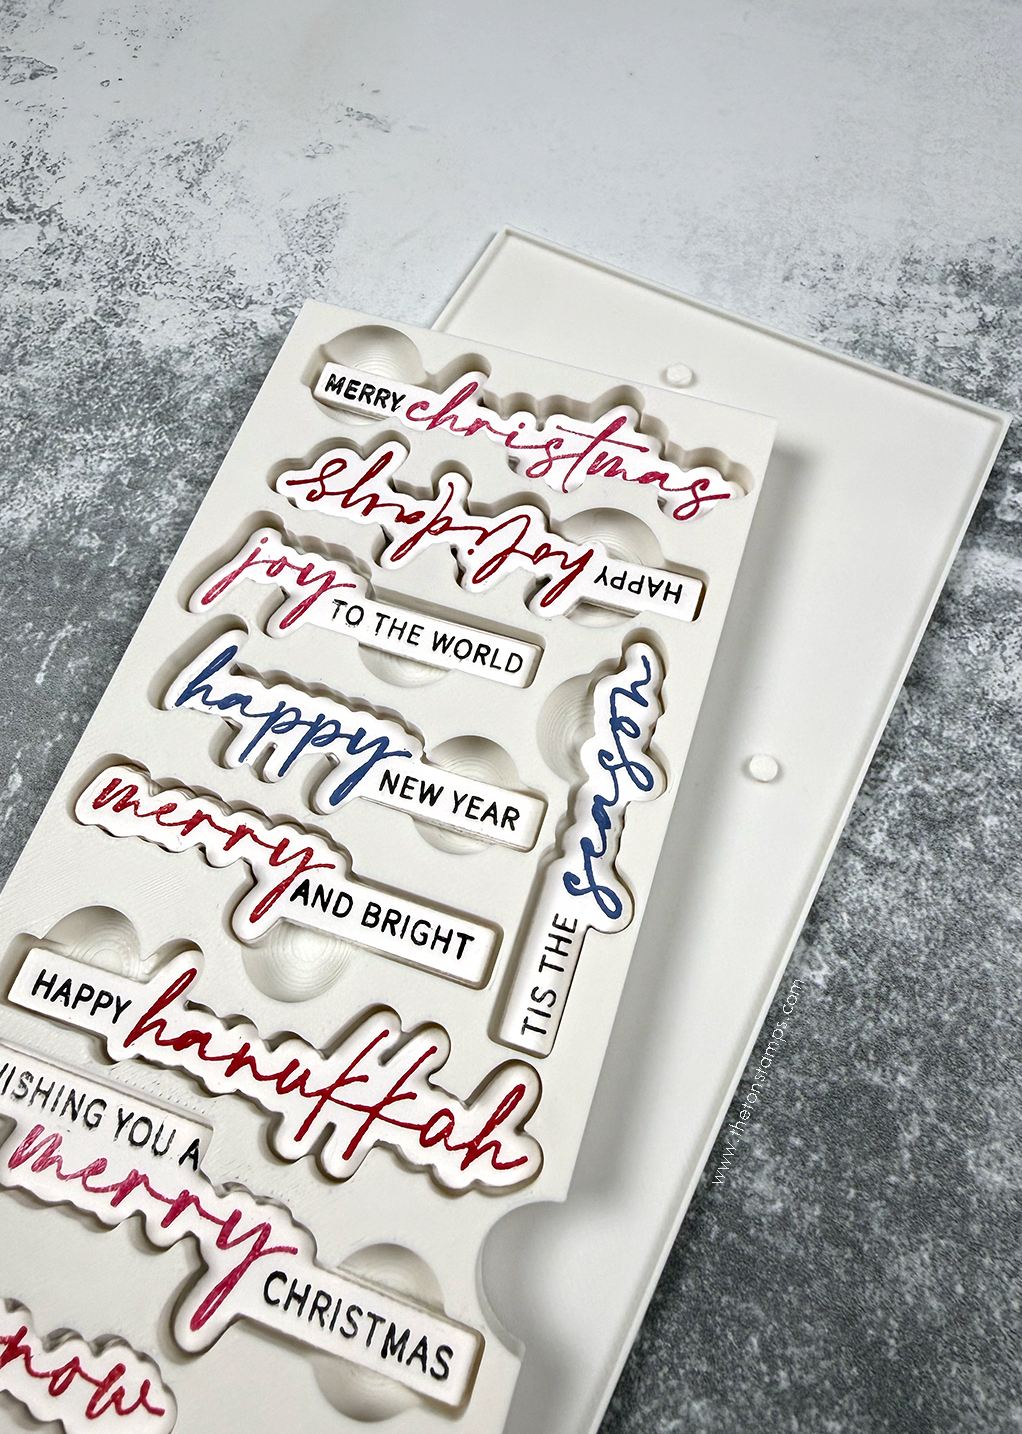 MERRY christmas
HAPPY holidays
joy TO THE WORLD
happy NEW YEAR
TIS THE season
merry AND BRIGHT
HAPPY hanukkah
WISHING YOU A
merry
CHRISTMAS
www.thetonstamps.com